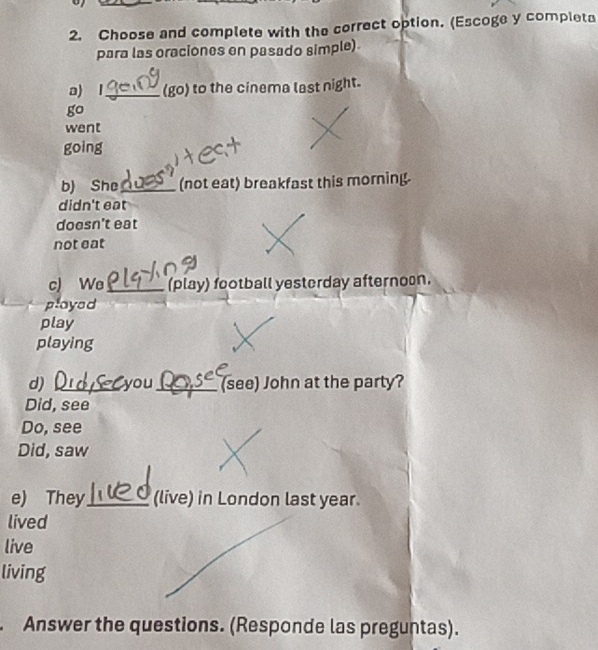 2. Choose and complete with the correct option. (Escoge y completa
para las oraciones en pasado simple).
a) I going (go) to the cinema last night.
go
went
going
b) She does'n't eat (not eat) breakfast this morning.
didn't eat
doesn't eat
not eat
c) We playing (play) football yesterday afternoon.
played
play
playing
d) Did, see you Do, see (see) John at the party?
Did, see
Do, see
Did, saw
e) They lived (live) in London last year.
lived
live
living
. Answer the questions. (Responde las preguntas).